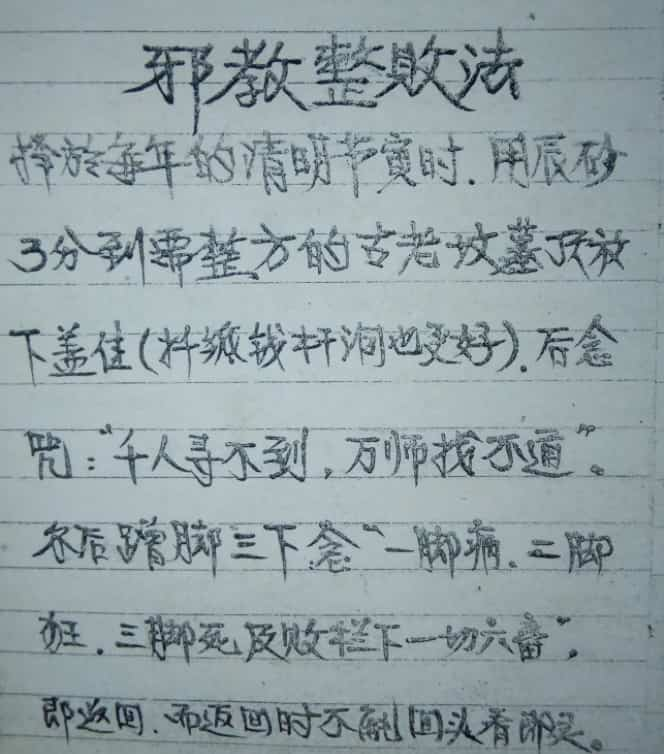 邪教整败法
择於每年的清明节寅时.用辰砂
3分到需整方的古老坟墓顶放
下盖住(扦纸钱杆洞也更好).后念
咒:“千人寻不到,万师找不通”。
尔后蹭脚三下念“一脚病.二脚
狂.三脚死及败栏下一切六畜”,
即返回.而返回时不能回头看即是。